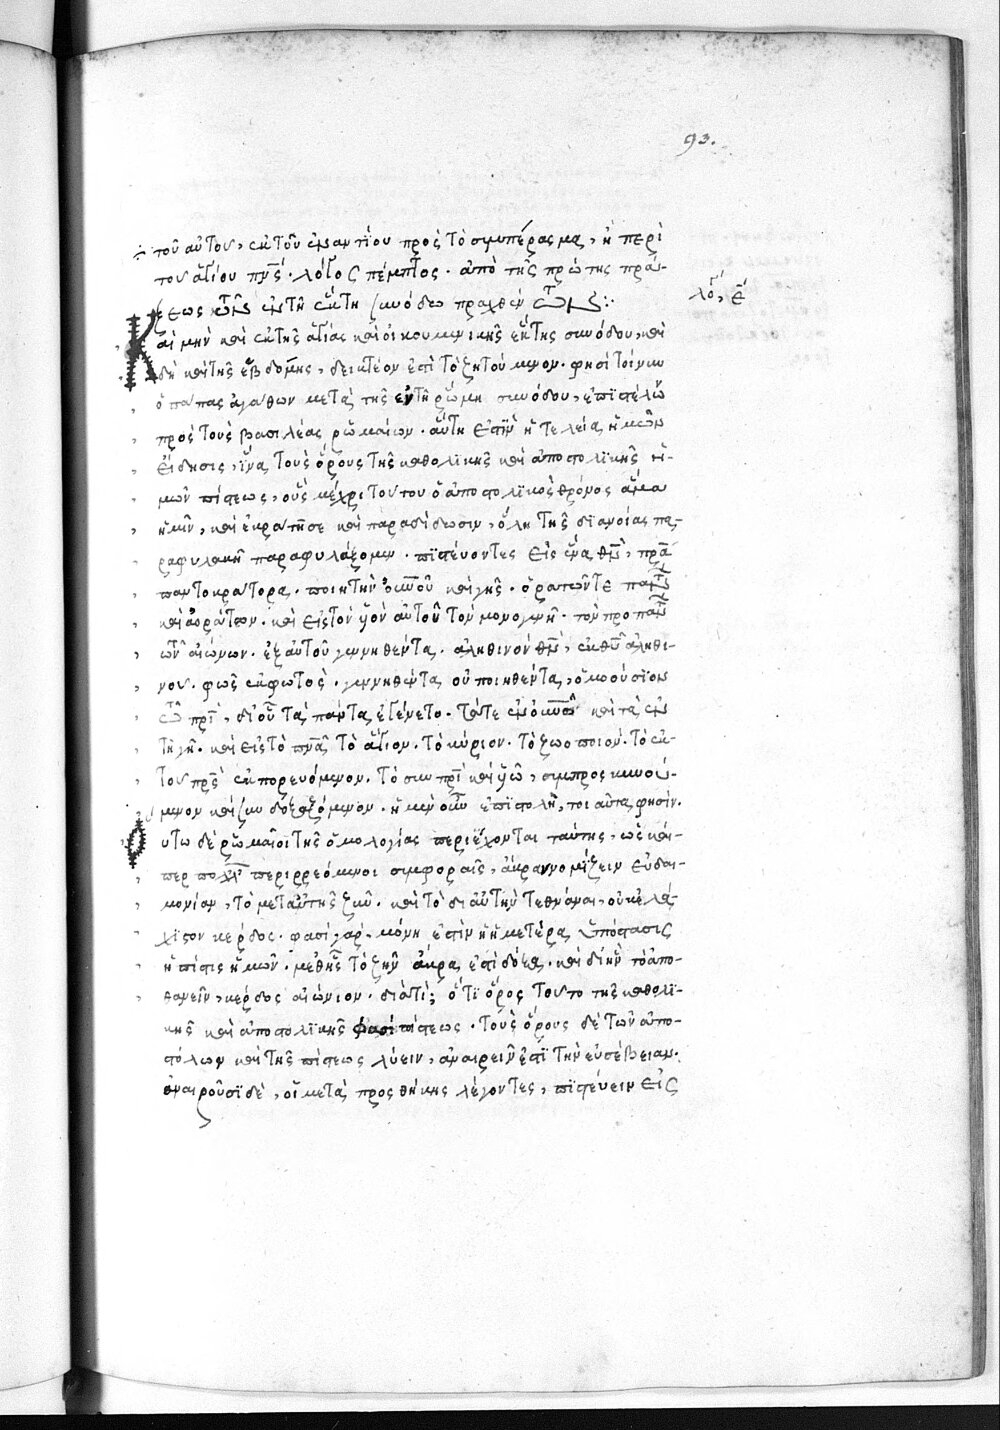 93.
τοῦ αὐτοῦ, ἐκ τοῦ ἐναντίου πρὸς τὸ συμπέρασμα, ἢ περὶ
τοῦ ἁγίου πν̅ς. λόγος πέμπτος. ἀπὸ τῆς πρώτης πρά-
ξεως τῶν ἐν τῇ ἕκτῃ συνόδῳ πραχθέντων:
λό, ε̅
Καὶ μὴν καὶ ἐκ τῆς ἁγίας καὶ οἰκουμενικῆς ἕκτης συνόδου, καὶ
δὴ καὶ τῆς ἑβδόμης, δεικτέον ἐστὶ τὸ ζητούμενον. φησὶ τοίνυν
ὁ πάπας ἀγάθων μετὰ τῆς ἐν τῇ ῥώμῃ συνόδου, ἐπιστέλλων
πρὸς τοὺς βασιλέας ῥωμαίων. αὕτη ἐστὶν ἡ τελεία ἡμῶν
εἴδησις, ἵνα τοὺς ὅρους τῆς καθολικῆς καὶ ἀποστολικῆς ἡ-
μῶν πίστεως, οὓς μέχρι τούτου ὁ ἀποστολικὸς θρόνος ἅμα
ἡμῖν, καὶ ἐκράτησε καὶ παραδίδωσιν, ὅλῃ τῆς διανοίας πα-
ραφυλακῇ παραφυλάξομεν. πιστεύοντες εἰς ἕνα θν̅, πρ̅α
παντοκράτορα. ποιητὴν οὐν̅οῦ καὶ γῆς. ὁρατῶν τε πάντων
καὶ ἀοράτων. καὶ εἰς τὸν υν̅ αὐτοῦ τὸν μονογενῆ. τὸν πρὸ πάντων
τῶν αἰώνων. ἐξ αὐτοῦ γεννηθέντα. ἀληθινὸν θν̅, ἐκ θυ̅ ἀληθι-
νοῦ. φῶς ἐκ φωτὸς. γεννηθέντα οὐ ποιηθέντα, ὁμοούσιον
τῷ πρ̅ι, δι οὗ τὰ πάντα ἐγένετο. τά τε ἐν οὐν̅ῷ καὶ τὰ ἐν
τῇ γῇ. καὶ εἰς τὸ πν̅α τὸ ἅγιον. τὸ κύριον. τὸ ζωοποιόν. τὸ ἐκ
τοῦ πρ̅ς ἐκπορευόμενον. τὸ σὺν πρ̅ι καὶ υἱῷ, συμπροσκυνού-
μενον καὶ συνδοξαζόμενον. ἡ μὲν οὖν ἐπιστολὴ, τοιαῦτα φησίν.
Οὕτω δὲ ῥωμαῖοι τῆς ὁμολογίας περιέχονται ταύτης, ὡς καί-
περ πολλαῖς περιρρεόμενοι συμφοραῖς, ἄκραν νομίζειν εὐδαι-
μονίαν, τὸ μετ αὐτῆς ζῆν. καὶ τὸ δι αὐτὴν τεθνάναι, οὐκ ἐλά-
χιστον κέρδος. φασὶ γάρ. μόνη ἐστὶν ἡ ἡμετέρα ὑπόστασις
ἡ πίστις ἡμῶν. μεθ ἧς τὸ ζῆν ἄκρα ἐστὶ δόξα. καὶ δι ἣν τὸ ἀπο-
θανεῖν, κέρδος αἰώνιον. διὰ τί; ὅτι ὅρος τοῦτο τῆς καθολι-
κῆς καὶ ἀποστολικῆς φασὶ πίστεως. τοὺς ὅρους δὲ τῶν ἀπο-
στόλων καὶ τῆς πίστεως λύειν, ἀναιρεῖν ἐστὶ τὴν εὐσέβειαν.
ἀναιροῦσι δὲ, οἱ μετὰ προσθήκης λέγοντες, πιστεύειν εἰς